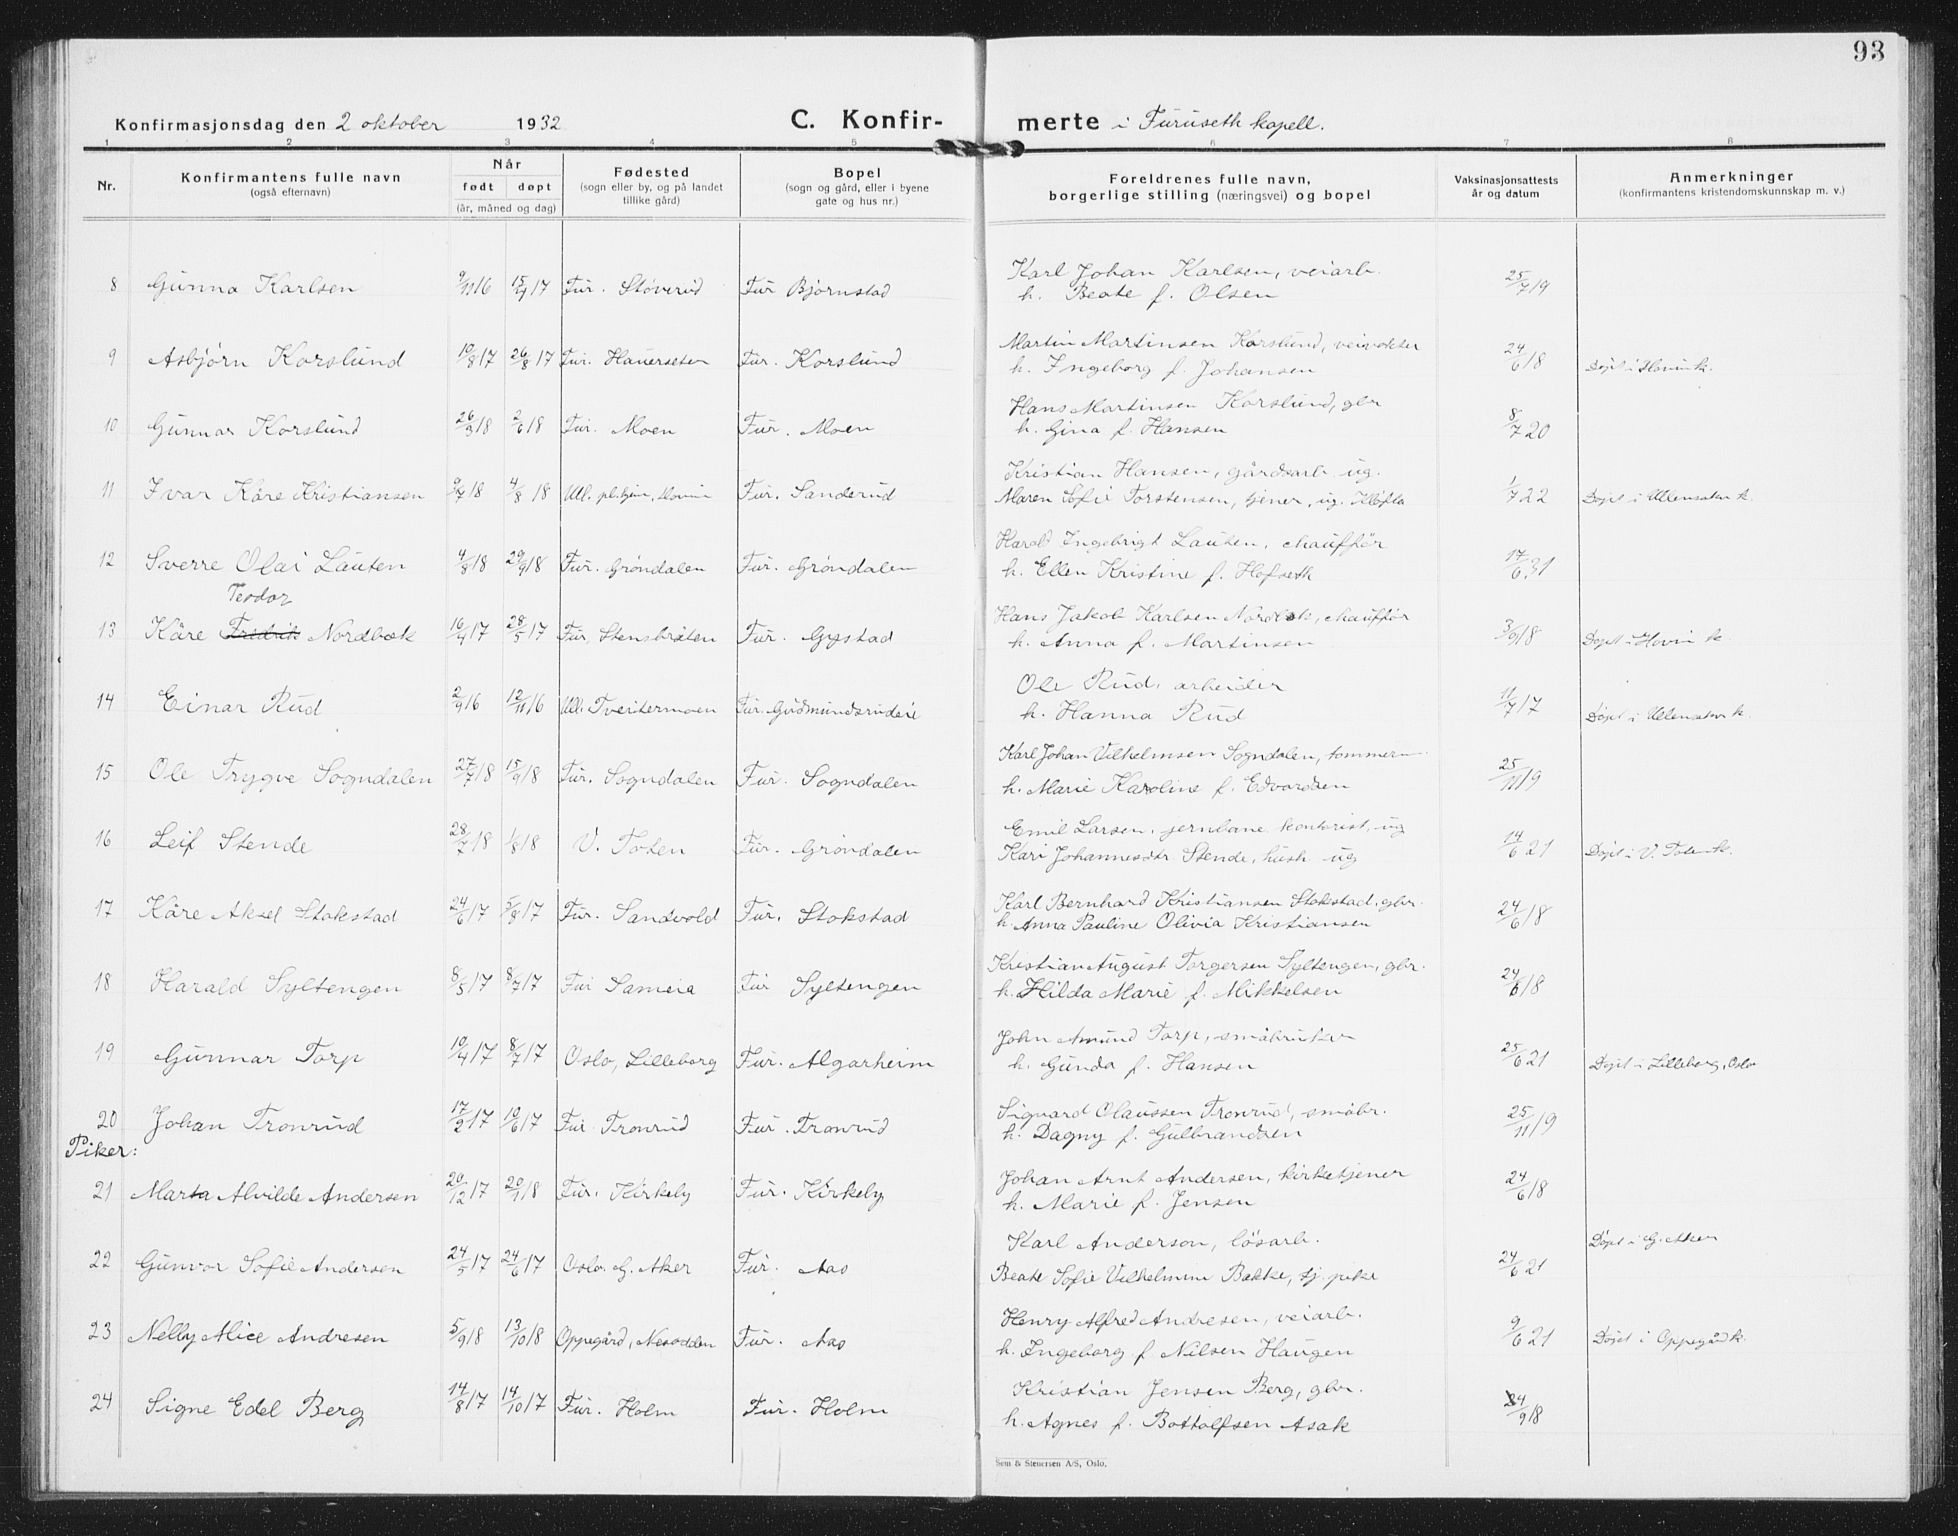 93
Konfirmasjonsdag den 2 oktober 1932 C. Konfir- merte i Furuseth kapell.
1 2 3 4 5 6 7 8
Nr. Konfirmantens fulle navn (også efternavn) Når født døpt (år, måned og dag) Fødested (sogn eller by, og på landet tillike gård) Bopel (sogn og gård, eller i byene gate og hus nr.) Foreldrenes fulle navn, borgerlige stilling (næringsvei) og bopel Vaksinasjonsattests år og datum Anmerkninger (konfirmantens kristendomskunnskap m. v.)
Karl Johan Karlsen, veiarb.
8 Gunna Karlsen 9/11 16 15/4 17 Fur. Støverud Fur Bjørnstad h. Beate f. Olsen 25/7 19
Martin Martinsen Korslund, veivokter
9 Asbjørn Korslund 10/8 17 26/8 17 Fur. Hauerseter Fur. Korslund h. Ingeborg f. Johansen 24/6 18 Døpt i Hovin k.
Hans Martinsen Korslund, gbr
10 Gunnar Korslund 26/3 18 2/6 18 Fur. Moen Fur. Moen h. Gina f. Hansen 8/7 20
Kristian Hansen, gårdsarb. ug.
11 Ivar Kåre Kristiansen 9/7 18 4/8 18 Ull. pl.hjem, Hovin Fur. Sanderud Maren Sofie Torstensen, tjener, ug. Kløfta 1/7 22 Døpt i Ullensaker k.
Harald Ingebrigt Lauten, chauffør
12 Sverre Olai Lauten 4/8 18 29/9 18 Fur. Grøndalen Fur. Grøndalen h. Ellen Kristine f. Hofseth 17/6 31
Teodor
Hans Jakob Karlsen Nordbæk, chauffør
13 Kåre Fredrik Nordbæk 16/4 17 28/5 17 Fur. Stensbråten Fur. Gystad h. Anna f. Martinsen 3/9 18 Døpt i Hovin k.
Ole Rud, arbeider
14 Einar Rud 2/9 16 12/11 16 Ull. Tveitermoen Fur. Gudmundsrudeie h. Hanna Rud 11/7 17 Døpt i Ullensaker k.
Karl Johan Vilhelmsen Sogndalen, tømmerm
15 Ole Trygve Sogndalen 27/7 18 15/9 18 Fur. Sogndalen Fur. Sogndalen h. Marie Karoline f. Edvardsen 25/11 19
Emil Larsen, jernbane kontorist, ug
16 Leif Stende 28/7 18 1/8 18 V. Toten Fur. Grøndalen Kari Johannesdtr. Stende, hush. ug 14/6 21 Døpt i V. Toten k.
Karl Bernhard Kristiansen Stokstad, gbr.
17 Kåre Aksel Stokstad 24/6 17 5/8 17 Fur. Sandvold Fur. Stokstad h. Anna Pauline Olivia Kristiansen 24/6 18
Kristian August Torgersen Syltengen, gbr.
18 Harald Syltengen 8/5 17 8/7 17 Fur Sameia Fur Syltengen h. Hilda Marie f. Mikkelsen 24/6 18
John Amund Torp, småbruker
19 Gunnar Torp 10/4 17 8/7 17 Oslo, Lilleborg Fur. Algarheim h. Gunda f. Hansen 25/6 21 Døpt i Lilleborg, Oslo
Sigvard Olaussen Tronrud, småbr.
20 Johan Tronrud 17/2 17 10/6 17 Fur Tronrud Fur. Tronrud h. Dagny f. Gulbrandsen 25/11 19
Piker:
Johan Arnt Andersen, kirketjener
21 Marta Alvilde Andersen 20/12 17 20/1 18 Fur. Kirkeby Fur. Kirkeby h. Marie f. Jensen 24/6 18
Karl Anderson, løsarb. Døpt i G. Aker
22 Gunvor Sofie Andersen 24/5 17 24/6 17 Oslo. G. Aker Fur. Aas Beate Sofie Vilhelmine Bakke, tj. pike 24/6 21
Henry Alfred Andresen, veiarb.
23 Nelly Alice Andresen 5/9 18 13/10 18 Oppegård, Nesodden Fur. Aas h. Ingeborg f Nilsen Haugen 9/6 21 Døpt i Oppegård k.
Kristian Jensen Berg, gbr.
24 Signe Edel Berg 14/8 17 14/10 17 Fur. Holm Fur. Holm h. Agnes f. Bottolfsen Asak 24/9 18
Sem & Stenersen A/S, Oslo.